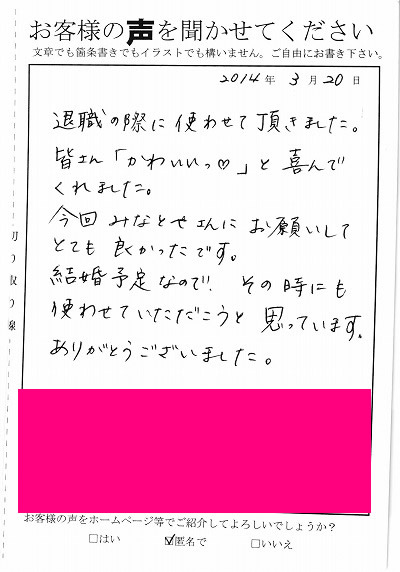 お客様の声を聞かせてください
文章でも箇条書きでもイラストでも構いません。ご自由にお書き下さい。
2014年 3月20日
退職の際に使わせて頂きました。
皆さん「かわいいっ♡」と喜んで
くれました。
今回みなとやさんにお願いして
とても良かったです。
結婚予定なので、その時にも
使わせていただこうと思っています。
ありがとうございました。
切り取り線
お客様の声をホームページ等でご紹介してよろしいでしょうか?
□はい ☑匿名で □いいえ